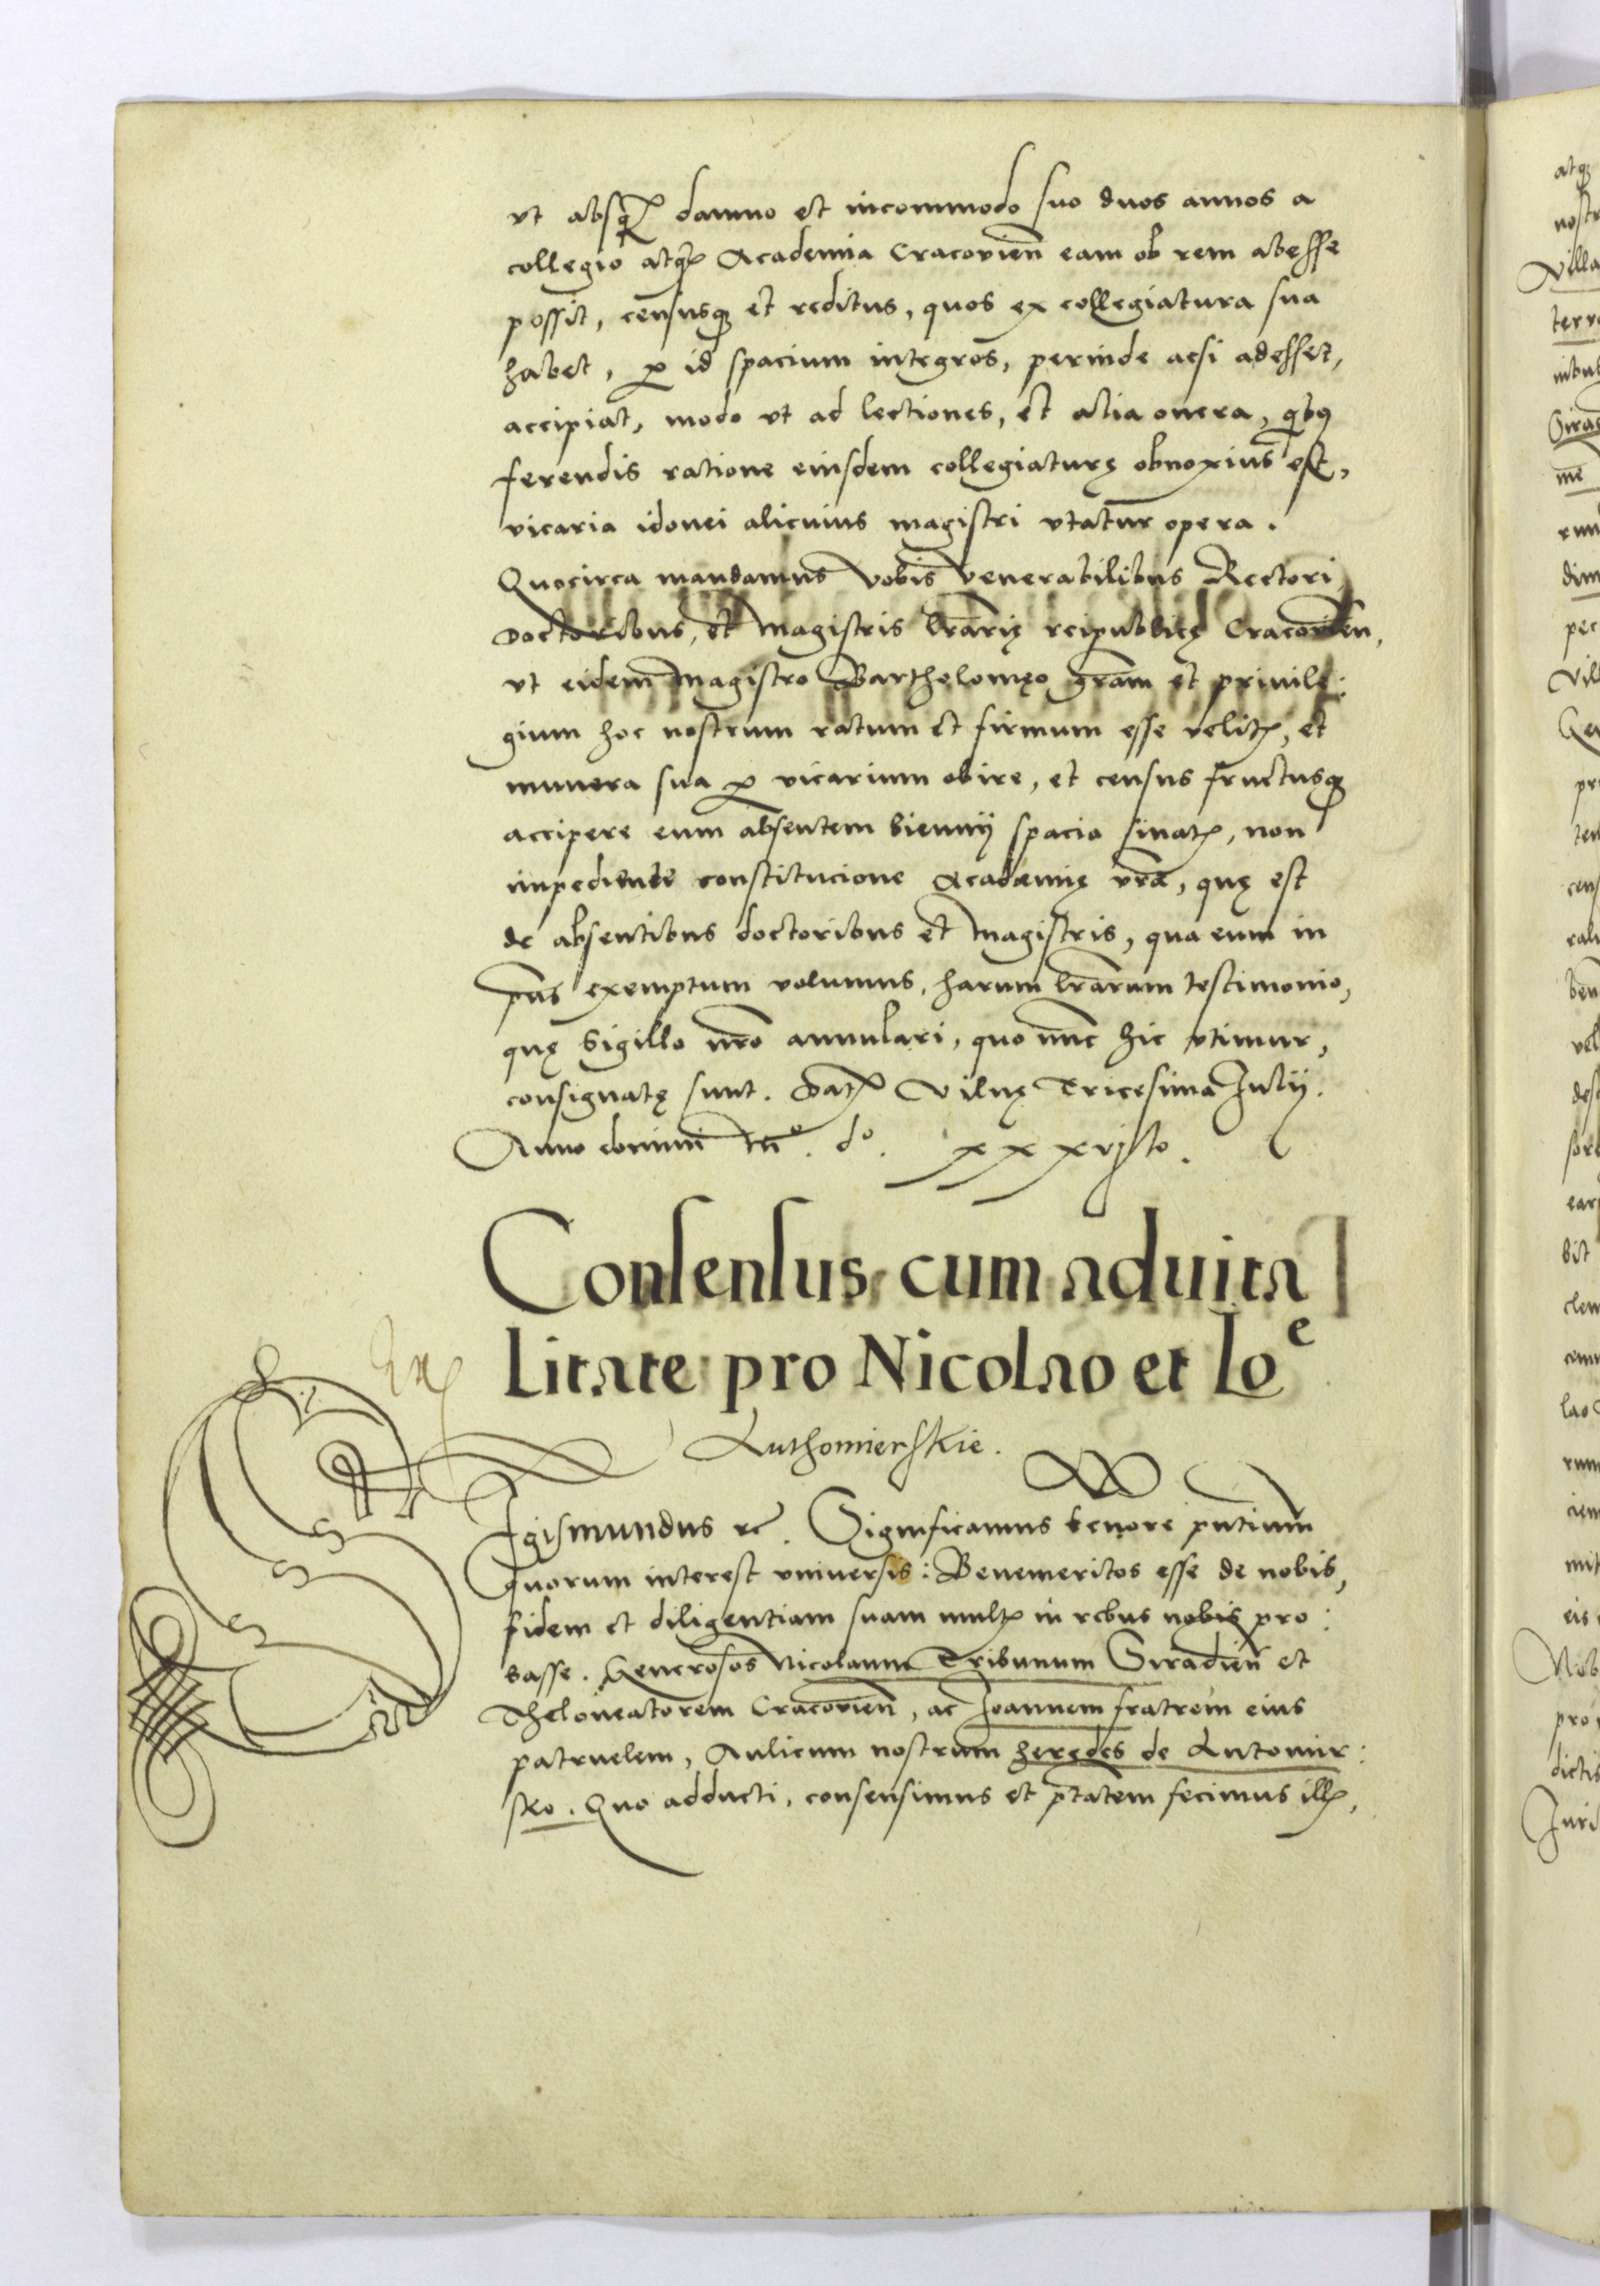 vt absq̃ damno et incommodo suo duos annos a
collegio atq̃ Academia Cracovieñ eam ob rem abesse
possit, censusq; et reditus, quos ex collegiatura sua
habet, p id spacium integros, perinde acsi adesset,
accipiat, modo vt ad lectiones, et alia onera, qib9
ferendis ratione eiusdem collegiaturę obnoxius est,
vicaria idonei alicuius magistri vtatur opera.
Quocirca mandamus Vobis Venerabilibus Rectori
Doctoribus, et Magistris lrãrię reipublicę Cracovieñ,
vt eidem Magistro Bartholomęo grãm et priuile:
gium hoc nostrum ratum et firmum esse velitꝭ, et
munera sua p vicarium obire, et census fructusq;
accipere eum absentem biennij spacio sinatꝭ, non
impediente constitucione Academię vrãe, quę est
de absentibus doctoribus et Magistris, qua eum in
pñs exemptum volumus, harum lrãrum testimonio,
quę Sigillo nrõ annulari, quo nunc hic vtimur,
consignatę sunt. Datꝭ Vilnę Tricesima Julij.
Anno domini Mº. dº. xxxvjsto.
Consensus cum aduita
litate pro Nicolao et Ioe
Luthomierskie.
SJgismundus rc. Significamus tenore pntium
quorum interest vniversis: Benemeritos esse de nobis,
fidem et diligentiam suam multꝭ in rebus nobis pro:
basse. Generosos Nicolaum Tribunum Siradieñ et
Theloneatorem Cracovieñ, ac Joannem fratrem eius
patruelem, Aulicum nostrum heredes de Lutomir:
sko. Quo adducti, consensimus et ptãtem fecimus illꝭ,